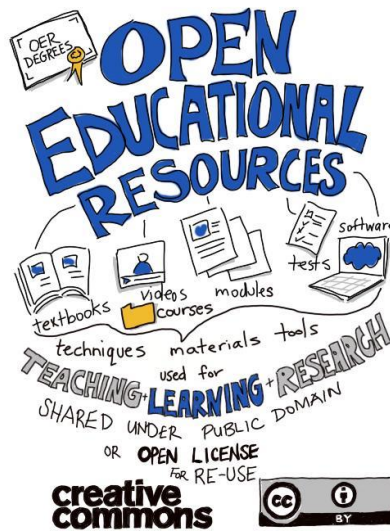 OER
DEGREES
OPEN
EDUCATIONAL
RESOURCES
textbooks
videos
modules
tests
software
courses
techniques materials tools
used for
TEACHING + LEARNING + RESEARCH
SHARED UNDER PUBLIC DOMAIN
OR OPEN LICENSE
FOR RE-USE
creative
commons
cc
BY